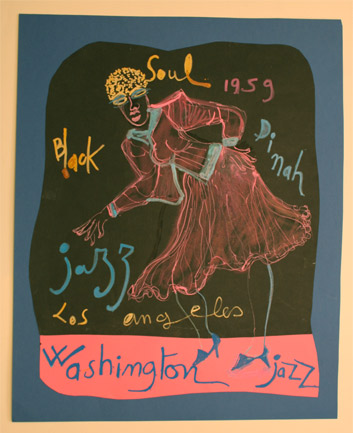 Soul
1959
Black
Dinah
jazz
Los angeles
Washington jazz